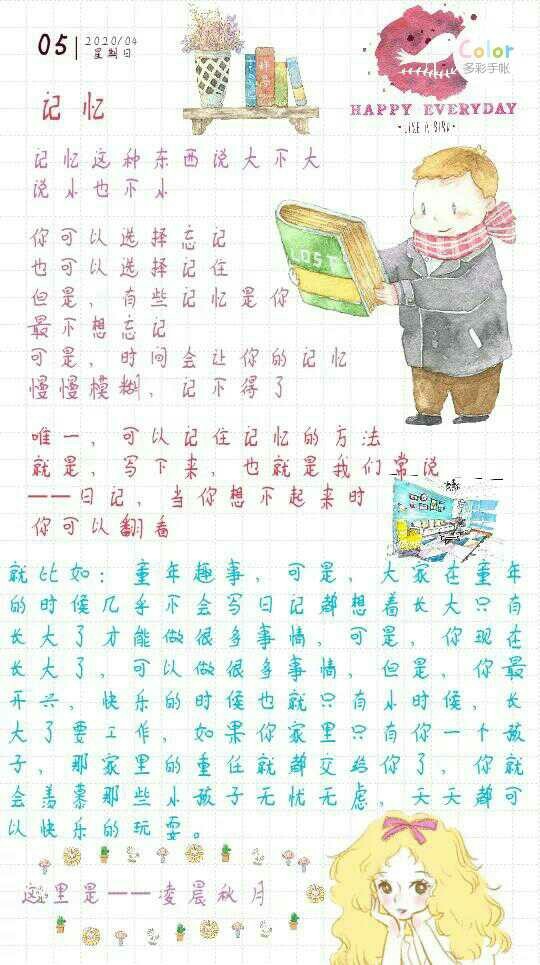 05
2020/04
星期日
Color
多彩手帐
HAPPY EVERYDAY
记忆
记忆这种东西说大不大
说小也不小
你可以选择忘记
也可以选择记住
但是，有些记忆是你
最不想忘记
可是，时间会让你的记忆
慢慢模糊，记不得了
LOST
唯一，可以记住记忆的方法
就是，写下来，也就是我们常说
——日记，当你想不起来时
你可以翻看
就比如：童年趣事，可是，大家在童年
的时候几乎不会写日记都想着长大只有
长大了才能做很多事情，可是，你现在
长大了，可以做很多事情，但是，你最
开兴，快乐的时候也就只有小时候，长
大了要工作，如果你家里只有你一个孩
子，那家里的重任就都交给你了，你就
会羡慕那些小孩子无忧无虑，天天都可
以快乐的玩耍。
这里是——凌晨秋月